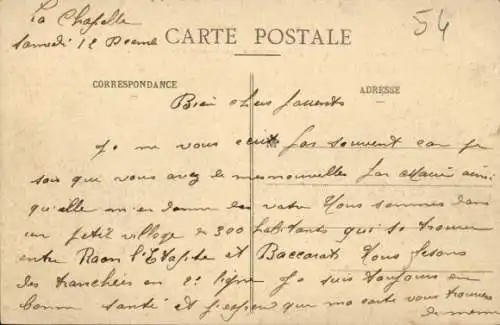 La Chapelle
Samedi 12 Decembre
54
CARTE POSTALE
CORRESPONDANCE
ADRESSE
Bien chers parents
Je ne vous ecrit pas souvent car je
sais que vous avez de mes nouvelles par Marie ainsi
qu'elle m'en donne des votre Nous sommes dans
un petit village de 300 habitants qui se trouve
entre Raon l'Etapite et Baccarat Nous fesons
des tranchées en 2e ligne Je suis toujours en
bonne santé et j'espere que ma carte vous trouvera
de meme